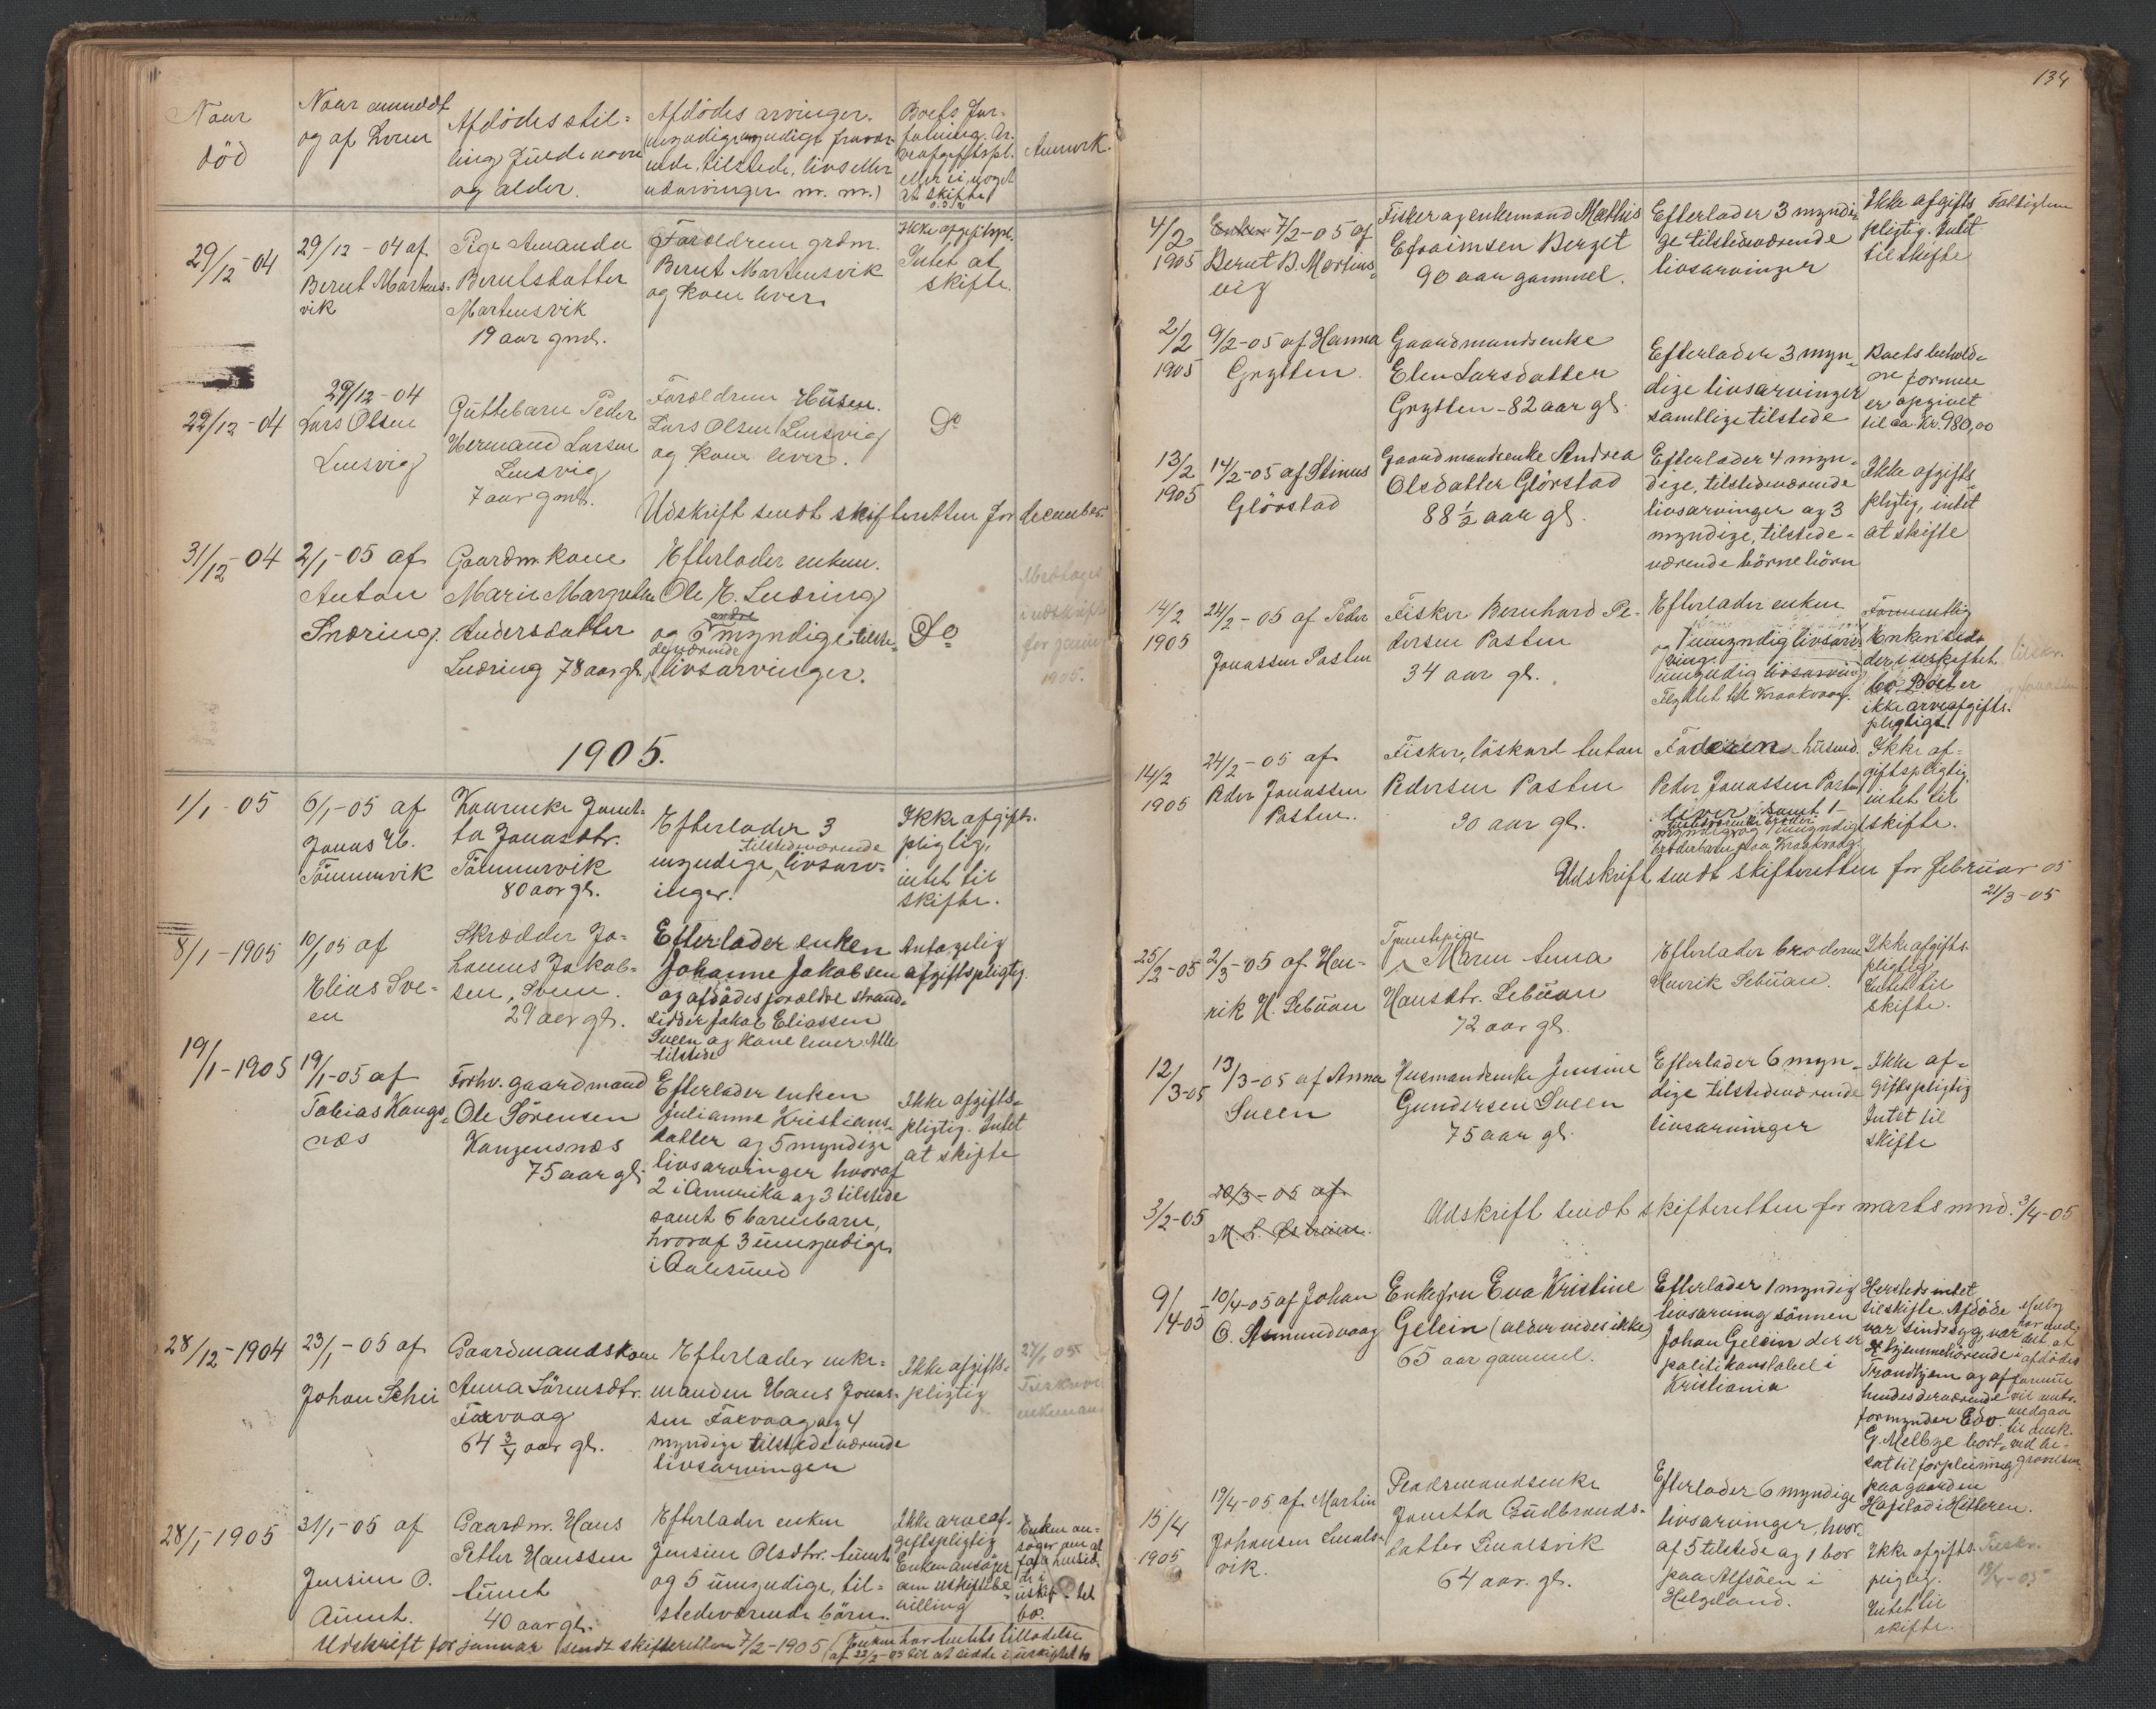 Naar
död
Naar anmeldt
og af hvem
Afdödes stil-
ling fulde navn
og alder.
Afdödes arvinger.
(myndige, umyndige, fravær-
ende, tilstede, livs eller
udarvinger m. m.)
Boets for-
fatning. Ar-
veafgiftspl.
eller ei, noget
at skifte
o. s. v.
Anmerk.
29/12-04
29/12-04 af
Bernt Martens-
vik
Pige Amanda
Berntsdatter
Martensvik
19 aar gml.
Forældrene grdm.
Bernt Martensvik
og kone lever.
Ikke afgiftspl.
Intet at
skifte.
22/12-04
29/12-04
Lars Olsen
Lensvig
Guttebarn Peder
Hermand Larsen
Lensvig
7 aar gml.
Forældrene Husm.
Lars Olsen Lensvig
og kone lever.
Do
Udskrift sendt skifteretten for december.
31/12-04
2/1-05 af
Anton
Snæring.
Gaardm. kone
Marie Margrethe
Andersdatter
Snæring 78 aar gl.
Efterlader enkem.
Ole E. Snæring
og 6 andre myndige tilste-
deværende livsarvinger.
Do
Medtages
i udskrift
for januar
1905.
1905.
1/1-05
6/1-05 af
Jonas H.
Tömmervik
Kaarenke Janet-
ta Jonasdtr.
Tömmervik
80 aar gl.
Efterlader 3
tilstedeværende
myndige livsarv-
inger.
Ikke afgifts-
pligtig,
intet til
skifte.
8/1-1905
10/1 05 af
Elias Sve-
en
Skrædder Jo-
hannes Jakob-
sen, Sveen.
29 aar gl.
Efterlader enken
Johanne Jakobsen
og afdödes forældre strand-
sidder Jakob Eliassen
Sveen og kone lever. Alle
tilstede
Antagelig
afgiftspligtig.
19/1-1905
19/1-05 af
Tobias Kongs-
næs
Forhv. gaardmand
Ole Sörensen
Kongensnæs
75 aar gl.
Efterlader enken
Julianne Kristians-
datter og 5 myndige
livsarvinger hvoraf
2 i Amerika og 3 tilstede
samt 6 barnebarn,
hvoraf 3 umyndige
i Aalesund
Ikke afgifts-
pligtig. Intet
at skifte
28/12-1904
23/1-05 af
Johan Schei
Gaardmandskone
Anna Sörensdtr.
Faxvaag
64 3/4 aar gl.
Efterlader enke-
manden Hans Jonas-
sen Faxvaag og 4
myndige tilstedeværende
livsarvinger
Ikke afgifts-
pligtig
27/1 05
28/1-1905
31/1-05 af
Jensine O.
Aunet.
Gaardm. Hans
Petter Hanssen
Aunet
40 aar gl.
Efterlader enken
Jensine Olsdtr. Aunet
og 5 umyndige, til-
stedeværende börn.
Ikke arveaf-
giftspligtig
Enken ansöger
om uskiftebe-
villing
Enken an-
söger om at
faa hensid-
de i
uskiftet
bo.
Udskrift for januar sendt skifteretten 7/2-1905
Enken har Amtets tilladelse
af 22/2-05 til at sidde i uskiftet bo
134
4/2
1905
7/2-05 af
Bernt B. Martins-
vig
Fisker og enkemand Mathis
Efraimsen Berget
90 aar gammel.
Efterlader 3 myndi-
ge tilstedeværende
livsarvinger
Ikke afgifts
pligtig. Intet
til skifte
Fattiglem
2/2
1905
9/2-05 af Hanna
Grytten.
Gaardmandsenke
Elen Larsdatter
Grytten - 82 aar gl.
Efterlader 3 myn-
dige livsarvinger
samtlige tilstede
Boets behold-
ne formue
er opgivet
til ca. Kr. 980,00
13/2
1905
14/2-05 af Stinus
Glörstad
Gaardmandsenke Andrea
Olsdatter Glörstad
88 1/2 aar gl.
Efterlader 4 myn-
dige, tilstedeværende
livsarvinger og 3
myndige, tilstede-
værende börnebörn
Ikke afgifts-
pligtig, intet
at skifte
14/2
1905
24/2-05 af Peder
Jonassen Pasten
Fisker Bernhard Pe-
dersen Pasten
34 aar gl.
Efterlader enken
og 1 umyndig livsarv-
ing.
umyndig livsarving
Flyttet til Kraakvaag.
Formentlig
Enken sid-
der i uskiftet
bo. Boet er
ikke arveafgifts-
pligtigt.
14/2
1905
24/2-05 af
Peder Jonassen
Pasten.
Fisker, löskarl Anton
Pedersen Pasten
30 aar gl.
Faderen husmd.
Peder Jonassen Pasten
lever samt 1
tilstedeværende broder
myndig og 1 umyndigt
broderbarn paa Kraakvaag.
Ikke af-
giftspligtig
intet til
skifte.
Udskrift sendt skifteretten for februar 05
21/3-05
25/2-05
2/3-05 af Hen-
rik H. Sebuan
Tjenestepige
Maren Anna
Hansdtr. Sebuan
72 aar gl.
Efterlader broderen
Henrik Sebuan.
Ikke afgifts-
pligtig
Intet til
skifte.
12/3-05
13/3-05 af Anna
Sveen
Husmandsenke Jensine
Gundersen Sveen
75 aar gl.
Efterlader 6 myn-
dige tilstedeværende
livsarvinger
Ikke af-
giftspligtig
Intet til
skifte
3/2-05
20/3-05 af
Udskrift sendt skifteretten for marts mnd. 3/4-05
9/4-05
10/4-05 af Johan
O. Asmundvaag
Enkefru Eva Kristine
Gelein (alder vides ikke)
65 aar gammel.
Efterlader 1 myndig
livsarving sönnen
Johan Gelein der er
politikonstabel i
Kristiania
Hersteds intet
til skifte. Afdöde
var sindssyg, var
hjemmehörende i
Trondhjem og af
hendes derværende
formynder Edv.
G. Melbye bort-
sat til forpleining
paa gaarden
Hafstad i Hitteren.
Melby
har medd.
det, at
afdödes
formue
vil
medgaa
til
ved be-
gravelsen.
15/4
1905
19/4-05 af Martin
Johansen Smals-
vik.
Gaardmandsenke
Janetta Gudbrands-
datter Smalsvik
64 aar. gl.
Efterlader 6 myndige
livsarvinger, hvor-
af 5 tilstede og 1 bor
paa Alfsöen i
Helgeland.
Ikke afgifts-
pligtig.
Intet til
skifte.
19/4-05